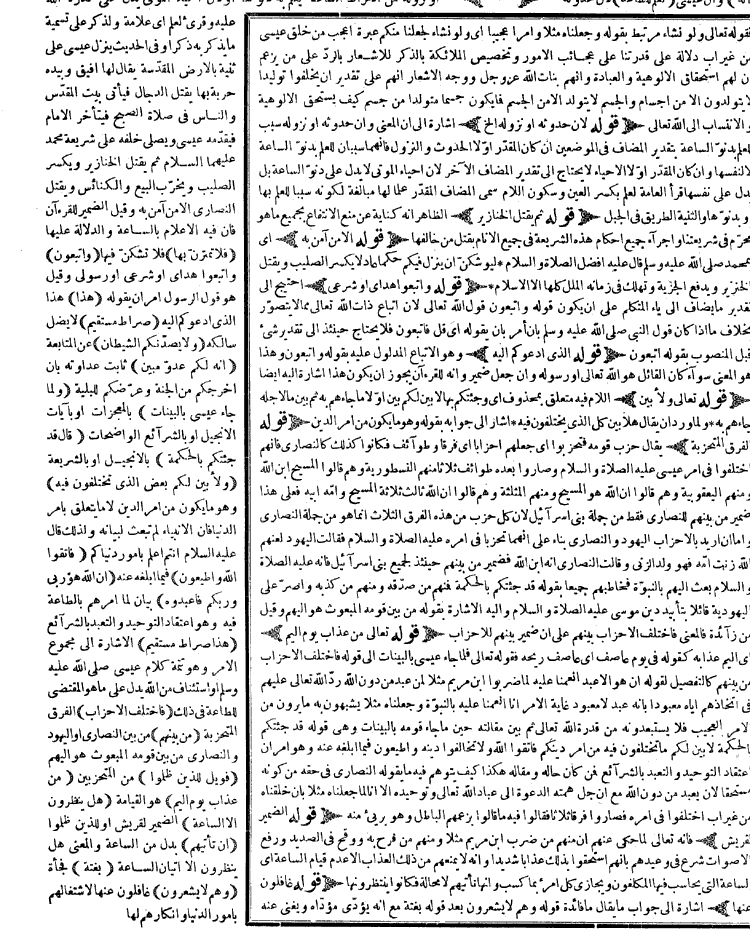 قوله تعالى ولو نشاء مرتبط بقوله وجعلناه مثلا وامرا عجيبا اى ولو نشاء لجعلنا منكم عبرة اعجب من خلق عيسى
من غيراب دلالة على قدرتنا على عجائب الامور وتخصيص الملائكة بالذكر للاشعار بالرد على من يزعم
ان لهم استحقاق الالوهية والعبادة وانهم بنات الله عز وجل ووجه الاشعار انهم على تقدير ان يخلقوا توليدا
لا يتولدون الا من اجسام والجسم لا يتولد الا من الجسم فيكون جسما متولدا من جسم كيف يستحق الالوهية
والانتساب الى الله تعالى قوله لان حدوثه او نزوله الخ اشارة الى ان المعنى وان حدوثه او نزوله سبب
للعلم بدنو الساعة بتقدير المضاف فى الموضعين ان كان المقدر اولا الحدوث و النزول فانهما سببان للعلم بدنو الساعة
لا لنفسها وان كان المقدر اولا الاحياء لا يحتاج الى تقدير المضاف الآخر لان احياء الموتى لا يدل على دنو الساعة بل
يدل على نفسها قرأ العامة لعلم بكسر العين وسكون اللام سمى المضاف المقدر علما لها مبالغة لكونه سببا للعلم بها
و بدنوها والثنية الطريق فى الجبل قوله ثم يقتل الخنازير الظاهر انه كناية عن منع الانتفاع بجميع ما هو
محرم فى شريعتنا و اجرآء جميع احكام هذه الشريعة فى جميع الانام بقتل من خالفها قوله الا من آمن به اى
بمحمد صلى الله عليه وسلم قال عليه افضل الصلاة والسلام * ليوشكن ان ينزل فيكم حكما عادلا يكسر الصليب و يقتل
الخنزير و يدفع الجزية و تهلك فى زمانه الملل كلها الا الاسلام * قوله و اتبعوا هداى او شرعى احتيج الى
تقدير ما يضاف الى ياء المتكلم على ان يكون قوله و اتبعون قول الله تعالى لان اتباع ذات الله تعالى مما لا يتصور
بخلاف ما اذا كان قول النبى صلى الله عليه وسلم بان امر بان يقوله اى قل فاتبعون فلا يحتاج حينئذ الى تقدير شئ
قبل المنصوب بقوله اتبعون قوله الذى ادعوكم اليه وهو الاتباع المدلول عليه بقوله واتبعون وهذا
هو المعنى سوآء كان القائل هو الله تعالى او رسوله وان جعل ضمير وانه للقرءآن يجوز ان يكون هذا اشارة اليه ايضا
قوله تعالى ولأبين اللام فيه متعلق بمحذوف اى وجئتكم بها لابين لكم بين اولا ما جاءهم به ثم بين ما لاجله
جاءهم به * و لما ورد ان يقال هلا بين كل الذى يختلفون فيه * اشار الى جوابه بقوله وهو ما يكون من امر الدين قوله
الفرق المتحزبة يقال حزب قومه فتحزبوا اى جعلهم احزابا اى فرقا و طوآئف فكانوا كذلك كالنصارى فانهم
اختلفوا فى امر عيسى عليه الصلاة و السلام وصاروا بعده طوائف ثلاثا منهم النسطورية وهم قالوا المسيح ابن الله
و منهم اليعقوبية و هم قالوا ان الله هو المسيح ومنهم المثلثة وهم قالوا ان الله ثالث ثلاثة المسيح و امه ابيه فعلى هذا
ضمير من بينهم للنصارى فقط من جملة بنى اسرآئيل لان كل حزب من هذه الفرق الثلاث انما هو من جملة النصارى
و اما ان اريد بالاحزاب اليهود والنصارى بناء على انهما تحزبا فى امره عليه الصلاة و السلام فقالت اليهود لعنهم
الله زنت امه فهو ولد الزنى و قالت النصارى انه ابن الله فضمير من بينهم حينئذ لجميع بنى اسرآئيل فانه عليه الصلاة
و السلام بعث اليهم بالنبوة فخاطبهم جميعا بقوله قد جئتكم بالحكمة فنهم من صدقه ومنهم من كذبه و اصر على
اليهودية قائلا بتأييد دين موسى عليه الصلاة و السلام و اليه الاشارة بقوله من بين قومه المبعوث هو اليهم وقيل
من زآئدة فالمعنى فاختلف الاحزاب بينهم على ان ضمير بينهم للاحزاب قوله تعالى من عذاب يوم اليم
اى اليم عذابه كقوله فى يوم عاصف اى عاصف ريحه فقوله تعالى فلما جاء عيسى بالبينات الى قوله فاختلف الاحزاب
من بينهم كالتفصيل لقوله ان هو الا عبد انعمنا عليه لما ضربوا ابن مريم مثلا لمن عبد من دون الله رد الله تعالى عليهم
فى اتخاذهم اياه معبودا بانه عبد لا معبود غاية الامر انا انعمنا عليه بالنبوة و جعلناه مثلا يشبهون به ما يرون من
الامر العجيب فلا يستبعدونه من قدرة الله تعالى ثم بين مقالته حين ما جاء قومه بالبينات وهى قوله قد جئتكم
بالحكمة لابين لكم ما تختلفون فيه من امر دينكم فاتقوا الله ولا تخالفوا دينه و اطيعون فيما ابلغه عنه و هو امران
اعتقاد التوحيد و التعبد بالشرآئع فمن كان حاله و مقاله هكذا كيف يتوهم فيه ما يقوله النصارى فى حقه من كونه
مستحقا لان يعبد من دون الله مع ان جل همته الدعوة الى عباد الله تعالى و توحيده الا انا لما جعلناه مثلا بان خلقناه
من غيراب اختلفوا فى امره فصاروا فرقا ثلاثا فقالوا فيه ما قالوا بزعمهم الباطل وهو برئ منه قوله الضمير
لقريش فانه تعالى لما حكى عنهم ان منهم من ضرب ابن مريم مثلا و منهم من فرح به ووقع فى الصديد ورفع
الاصوات شرع فى وعيدهم بانهم استحقوا بذلك عذابا شديدا و انه لا يمنعهم من ذلك العذاب الا عدم قيام الساعة اى
الساعة التى يحاسب فيها المكلفون ويجازى كل امرئ بما كسب وانها تأتيهم لا محالة فكانوا ينتظرونها قوله غافلون
عنها اشارة الى جواب ما يقال ما فائدة قوله وهم لا يشعرون بعد قوله بغتة مع انه يؤدى مؤداه و يغنى عنه
عليه وقرئ لعلم اى علامة ولذكر على تسمية
ما يذكر به ذكرا وفى الحديث ينزل عيسى على
ثنية بالارض المقدسة يقال لها افيق و بيده
حربة بها يقتل الدجال فيأتى بيت المقدس
والناس فى صلاة الصبح فيتأخر الامام
فيقدمه عيسى ويصلى خلفه على شريعة محمد
عليهما السلام ثم يقتل الخنازير و يكسر
الصليب و يخرب البيع و الكنائس و يقتل
النصارى الا من آمن به و قيل الضمير للقرءآن
فان فيه الاعلام بالساعة و الدلالة عليها
(فلا تمترن بها) فلا تشكن فيها (واتبعون)
و اتبعوا هداى او شرعى او رسولى و قيل
هو قول الرسول امر ان يقوله (هذا) هذا
الذى ادعوكم اليه (صراط مستقيم) لا يضل
سالكه (ولا يصدنكم الشيطان) عن المتابعة
(انه لكم عدو مبين) ثابت عداوته بان
اخرجكم من الجنة و عرضكم للبلية (ولما
جاء عيسى بالبينات) بالمعجزات او بآيات
الانجيل او بالشرآئع الواضحات (قال قد
جئتكم بالحكمة) بالانجيل او بالشريعة
(ولأبين لكم بعض الذى تختلفون فيه)
وهو ما يكون من امر الدين لا ما يتعلق بامر
الدنيا فان الانبياء لم تبعث لبيانه و لذلك قال
عليه السلام انتم اعلم بامور دنياكم (فاتقوا
الله واطيعون) فيما ابلغه عنه (ان الله هو ربى
وربكم فاعبدوه) بيان لما امرهم بالطاعة
فيه وهو اعتقاد التوحيد و التعبد بالشرآئع
(هذا صراط مستقيم) الاشارة الى مجموع
الامر وهو تتمة كلام عيسى صلى الله عليه
وسلم او استئناف من الله يدل على ما هو المقتضى
للطاعة فى ذلك (فاختلف الاحزاب) الفرق
المتحزبة (من بينهم) من بين النصارى او اليهود
و النصارى من بين قومه المبعوث هو اليهم
(فويل للذين ظلموا) من المتحزبين (من
عذاب يوم اليم) هو القيامة (هل ينظرون
الا الساعة) الضمير لقريش او للذين ظلموا
(ان تأتيهم) بدل من الساعة و المعنى هل
ينظرون الا اتيان الساعة (بغتة) فجأة
(وهم لا يشعرون) غافلون عنها لاشتغالهم
بامور الدنيا و انكارهم لها